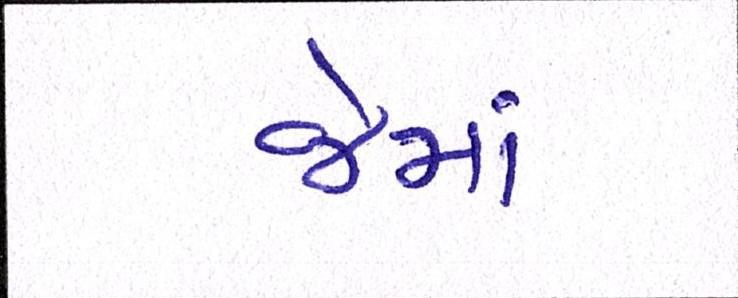 જેમાં